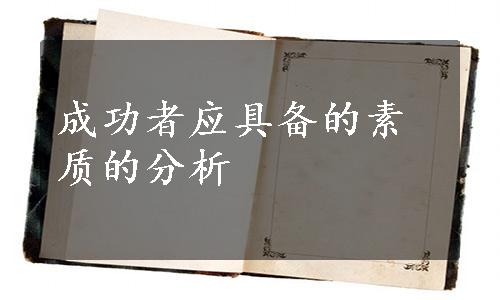 成功者应具备的素
质的分析